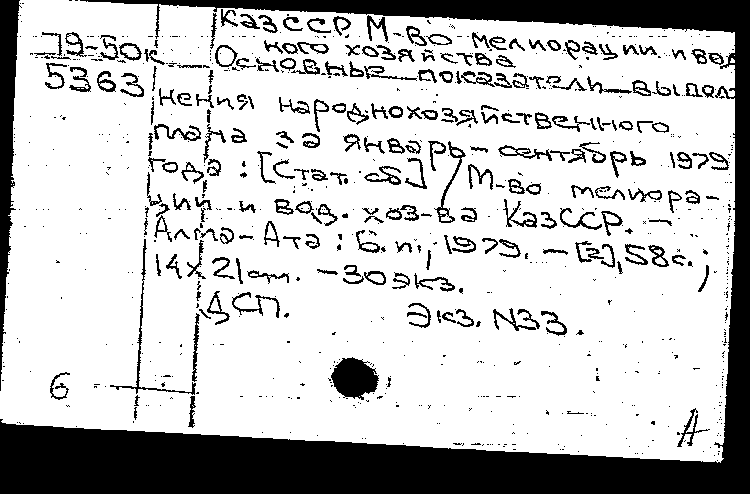 КазССР М-во мелиорации и вод
ного хозяйства
79-50к
5363
Основные показатели выпол
нения народнохозяйственного
плана за январь-сентябрь 1979
года: [Стат. сб.] / М-во мелиора-
ции и вод. хоз-ва КазССР. —
Алма-Ата: Б.и., 1979. — [2], 58с.;
14х21см. — 30экз.
ДСП. Экз. N33.
6
А